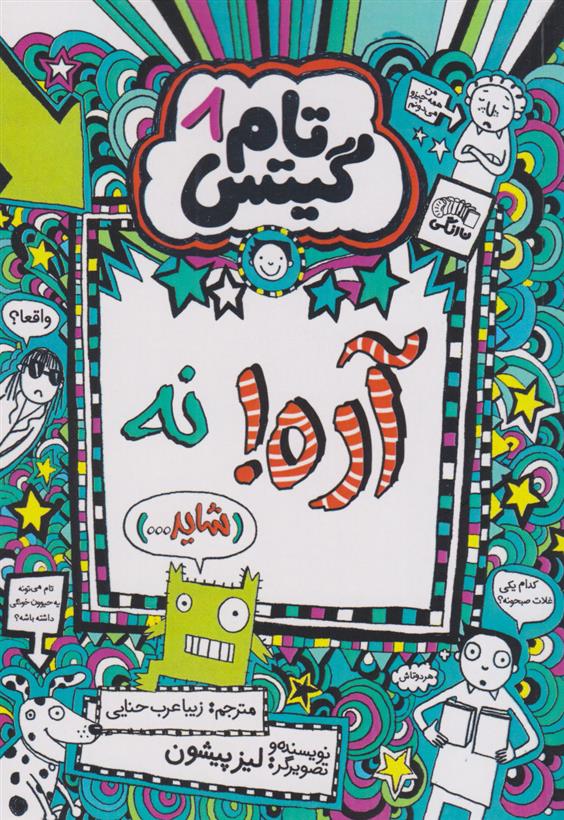 تام
گیتس
۸
من
همه‌چیزو
می‌دونم
نارنگی
واقعا؟
آره! نه
(شاید...)
تام می‌تونه
یه حیوون خونگی
داشته باشه؟
کدام یکی
غلات صبحونه؟
هردوتاش
مترجم: زیبا عرب حنایی
نویسنده و
تصویرگر: لیز پیشون